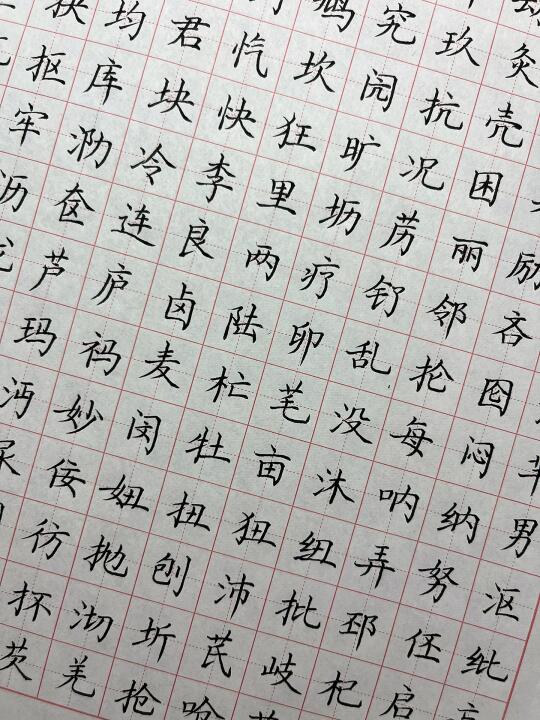 鸠究玖灸
抉均君忾坎园抗壳
抠库块快狂旷况困
牢泐冷李里坜苈丽励
沥奁连良两疗钌邻吝
芦庐卤陆卵乱抡囵
玛祃麦杧芼没每闷
沔妙闵牡亩沐呐纳男
尿佞妞扭狃纽弄努沤
彷抛刨沛批邳伾纰
抔沏圻芪岐杞启
芡羌抢呛